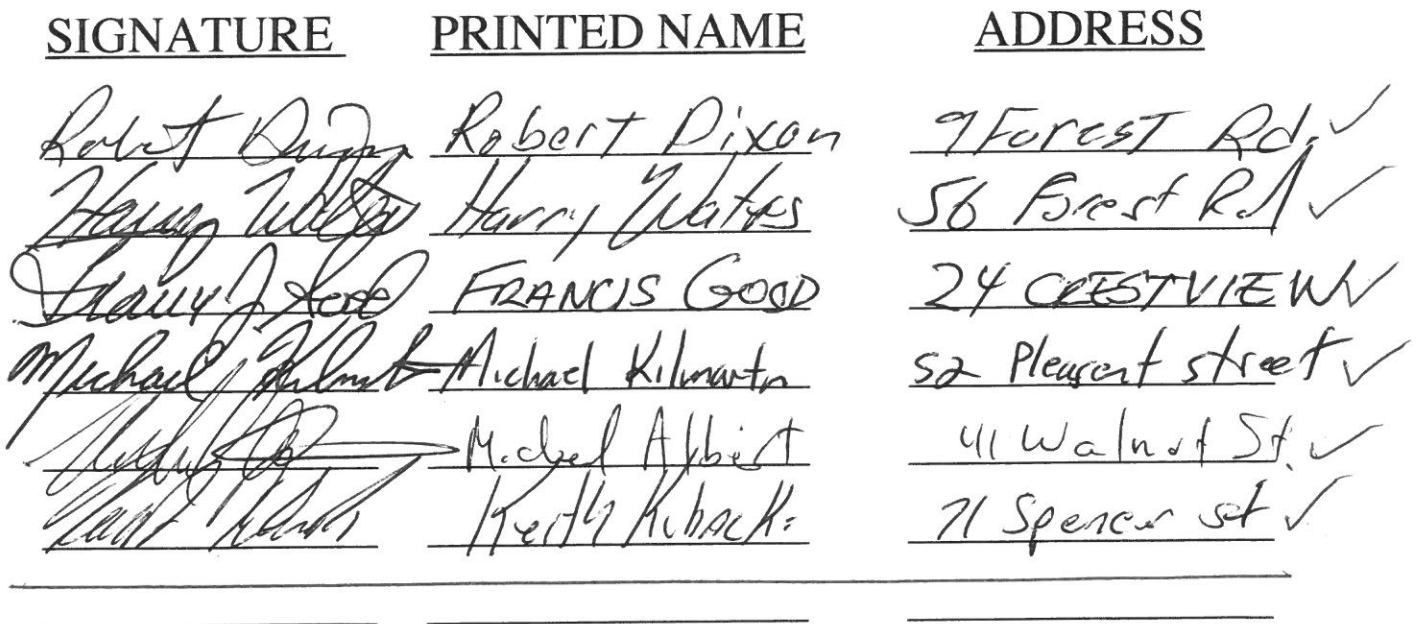 SIGNATURE PRINTED NAME ADDRESS
Robert Dixon Robert Dixon 9 Forest Rd. ✓
Harry Watts Harry Watts 56 Forest Rd ✓
Francis J Good FRANCIS GOOD 24 CRESTVIEW ✓
Michael J Kilmartin Michael Kilmartin 52 Pleasent street ✓
Michael 41 Walnut St. ✓
Keith 71 Spencer ✓